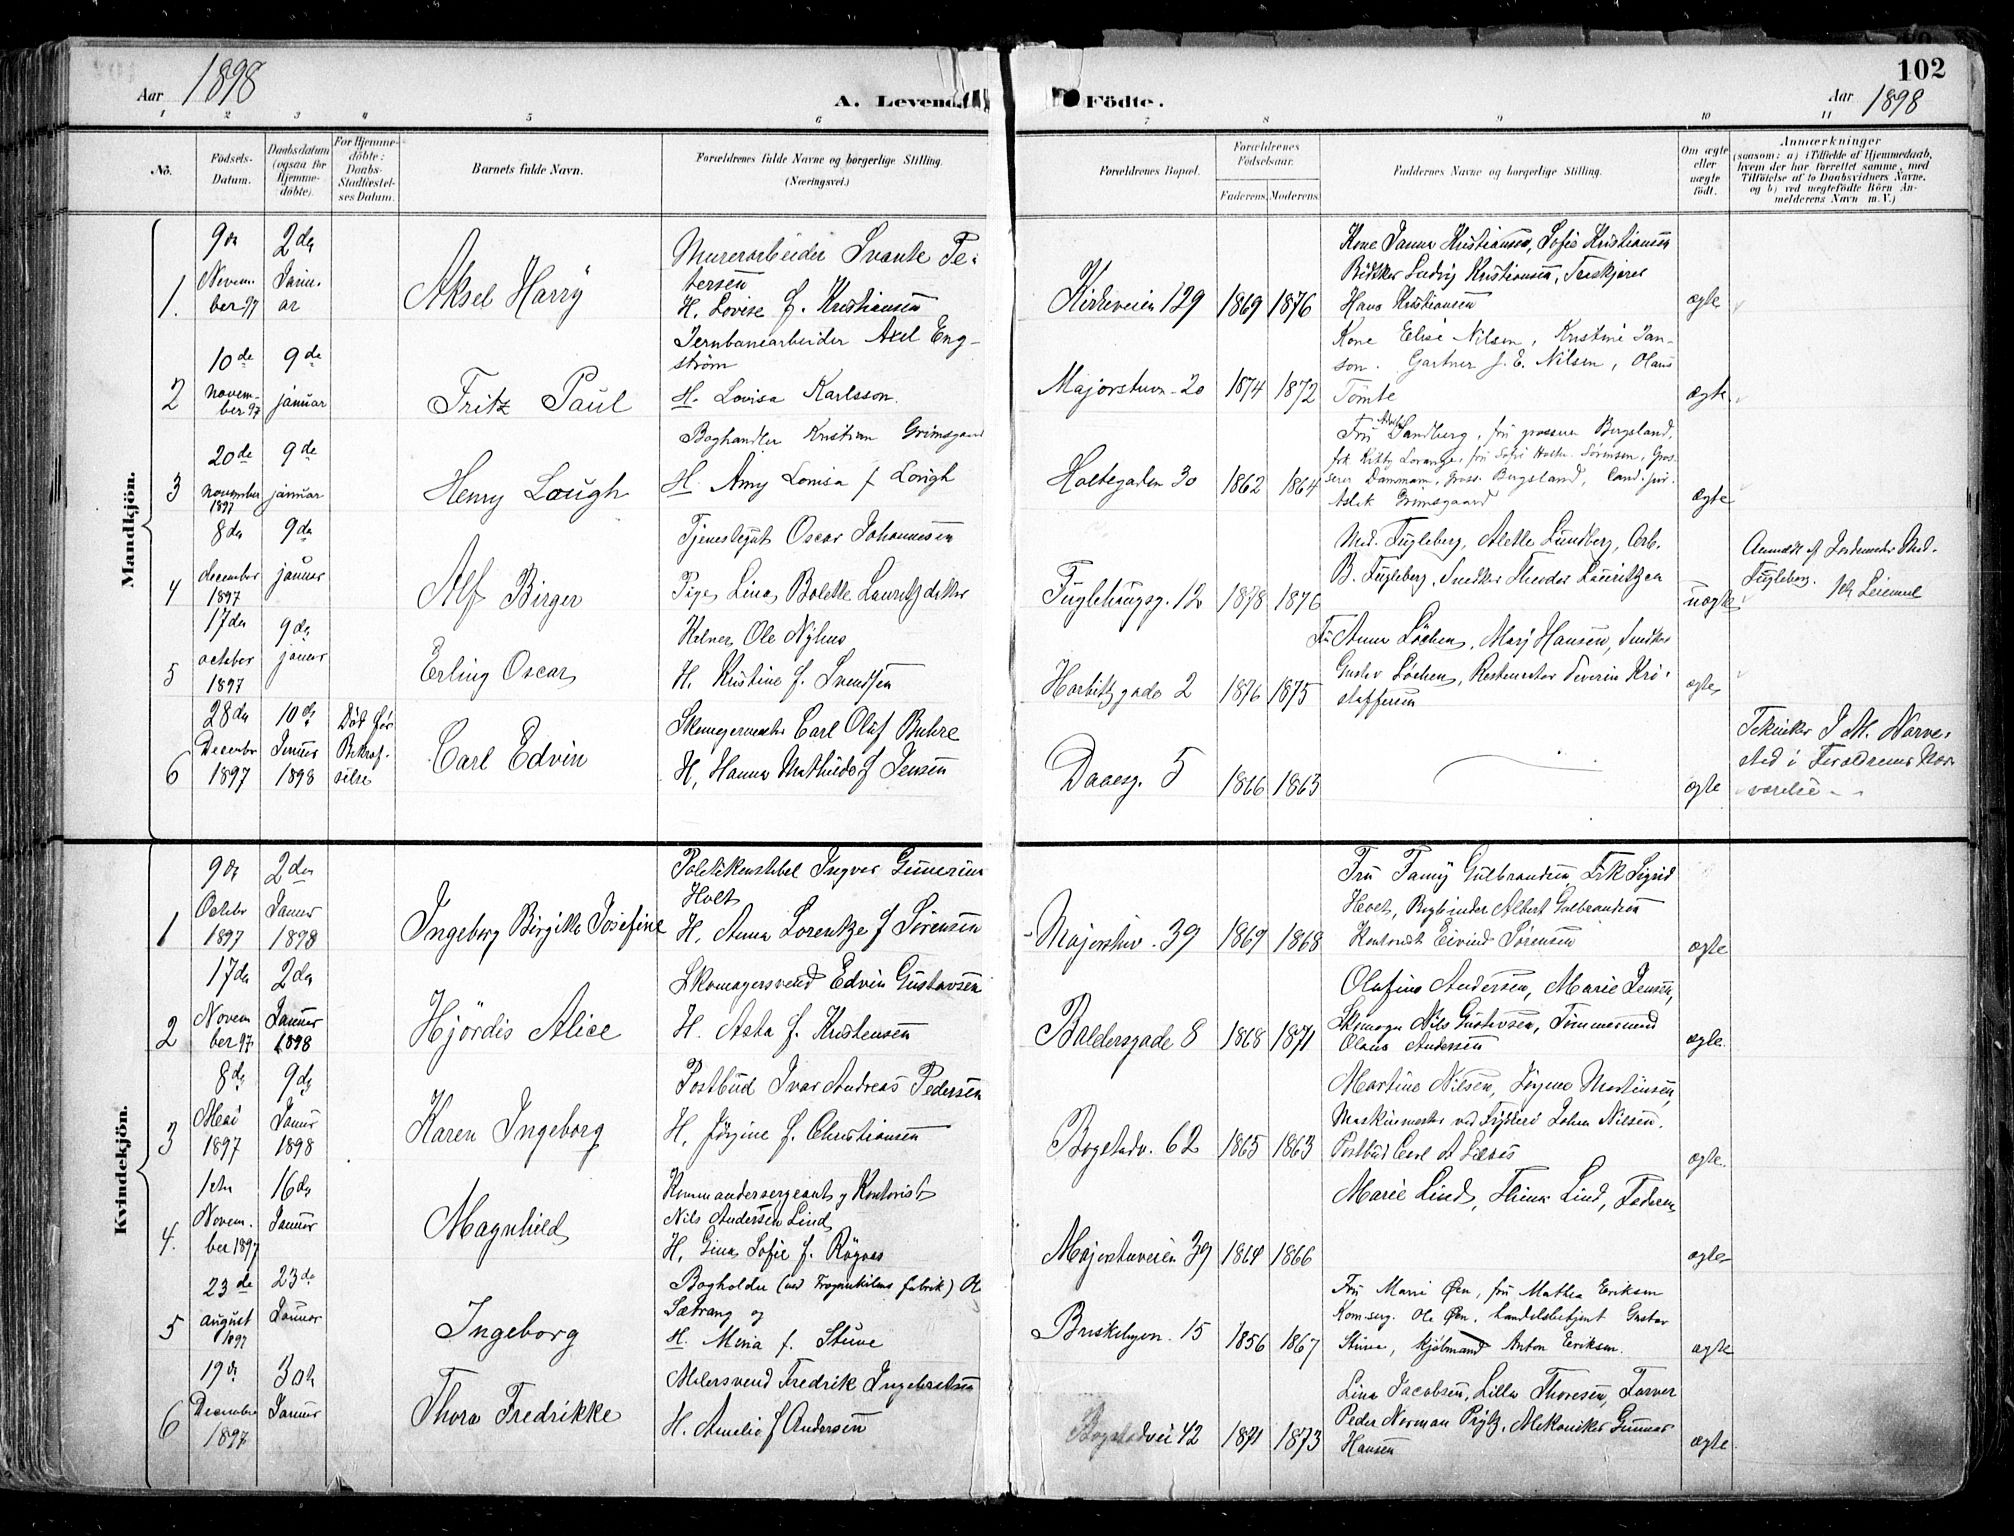 102
Aar 1898
A. Levende Födte.
Aar 1898
1 2 3 4 5 6 7 8 9 10 11
No.
Födsels-Datum.
Daabsdatum (ogsaa for Hjemme-döbte).
For Hjemme-döbte: Daabs-Stadfæstel-ses Datum.
Barnets fulde Navn.
Forældrenes fulde Navne og borgerlige Stilling. (Næringsvei.)
Forældrenes Bopæl.
Forældrenes Födselsaar.
Faderens. Moderens.
Faddernes Navne og borgerlige Stilling.
Om ægte eller uægte födt.
Anmærkninger
(saasom: a) i Tilfælde af Hjemmedaab,
hvem der har forrettet samme, med
Tilföielse af to Daabsvidners Navne.
og b) ved uægtefödte Börn An-
melderens Navn m. V.)
Mandkjön.
1.
9de Novem-ber 97
2den Janu-ar
Aksel Harry
Murerarbeider Svante Pe-
tersen
H. Lovise f. Kristiansen
Kirkeveien 129
1869 1876
Kone Janna Kristiansen, Sofie Kristiansen
Bødker Ludvig Kristiansen,
Hans Kristiansen
ægte
2
10de novem-ber 97
9de januar
Fritz Paul
Jernbanearbeider Axel Eng-
ström
H. Lovisa Karlsson.
Majorstuen 20
1874 1872
Kone Elise Nilsen, Kristine Jan-
son. Gartner J. E. Nilsen, Olaus
Tömte
ægte
3
20de november 1897
9de januar
Henry Lough
Boghandler Kristian Grimsgaard
H. Amy Louisa f Lough
Holtegaden 30
1862 1864
Fru Sandberg, fru grosserer Bergsland,
frk Kitty Lorange, fru Sofie Holm Sörensen, Gros-
serer Dammam, Gross. Bergsland, Cand. jur.
Aslak Grimsgaard
ægte
4
8de december 1897
9de januar
Alf Birger
Tjenestegut Oscar Johannesen
Pige Lina Bolette Lauritzdatter
Fuglehaugsg. 12
1878 1876
Mad. Fugleberg, Alette Lundberg, Arb.
B. Fugleberg, Snedker Theodor Lauritzen
uægte
Anmeldt af Jordemoder Mad.
Fugleberg.
5
17de october 1897
9de januar
Erling Oscar
Kelner Ole Nyhus
H. Kristine f. Svendsen
Harbitzgade 2
1876 1875
Fru Anna Löchen, Marj Hansen, Snedker
Gustav Löchen, Restauratør Severin Kri-
stoffersen
ægte
6
28de December 1897
10de Januar 1898
Død før Bekræf-telse
Carl Edvin
Skomagermester Carl Oluf Buhre
H. Hanna Mathilde f Jensen
Daaesg. 5
1866 1863
ægte
Tekniker J. M. Narve-
sted i Forældrenes Nær-
værelse
Kvindekjön.
1
9de Octobr 1897
2den Januar 1898
Ingeborg Birgitte Josefine
Politikonstabel Ingvar Gunerius
Holt
H. Anna Lorentze f Sørensen
Majorstuv. 39
1869 1868
Fru Fanny Gulbrandsen, Frk Sigrid
Holt, Bogbinder Albert Gulbrandsen
Kontorist Eivind Sørensen
ægte
2
17de Novem ber 97
2den Januar 1898
Hjördis Alice
Skomagersvend Edvin Gustavsen
H. Asta f. Kristensen
Baldersgade 8
1868 1871
Olufine Andersen, Marie Jensen,
Skomager Nils Gustavsen, Tømmermand
Olaus Andersen
ægte.
3
8de Mai 1897
9de Januar 1898
Karen Ingeborg
Postbud Ivar Andreas Pedersen
H. Jörgine f. Christiansen
Bogstadv. 62
1865 1863
Martine Nilsen, Jörgine Martinsen,
Maskinmester ved Johan Nilsen.
Postbud Carl A
ægte.
4.
1ste Novem-ber 1897
16de Januar
Magnhild
Kommandersergeant og Kontorist
Nils Andersen Lind
H. Gina Sofie f. Røgnes
Majorstuveien 39
1864 1866
Marie Lind, Thina Lind, Faderen
ægte
5
23de august 1897
23de Januar
Ingeborg
Bogholder (ved Frognerkilens fabrik) Ole
Sætrang og
H. Mina f. Stuve
Briskebyen 15
1856 1867
Fru Marie Øen, fru Mathea Eriksen
Kom.serg. Ole Øen, handelsbetjent Gustav
Stuve, Kjöbmand Anton Eriksen.
ægte
6
19de December 1897
30te Januar
Thora Fredrikke
Malersvend Fredrik Ingebretsen
H. Amelie f Andersen
Bogstadvei 42
1871 1873
Lina Jacobsen, Lilla Thoresen, Farver
Peder Norman Prytz, Mekaniker Gunnar
Hansen
ægte